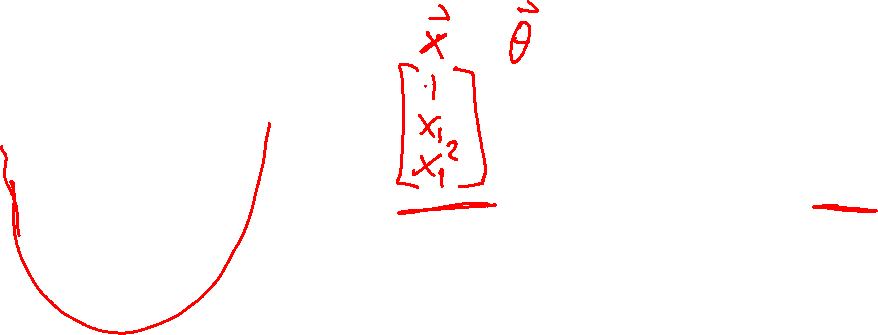 x⃗ θ⃗
1
x₁
x₁²